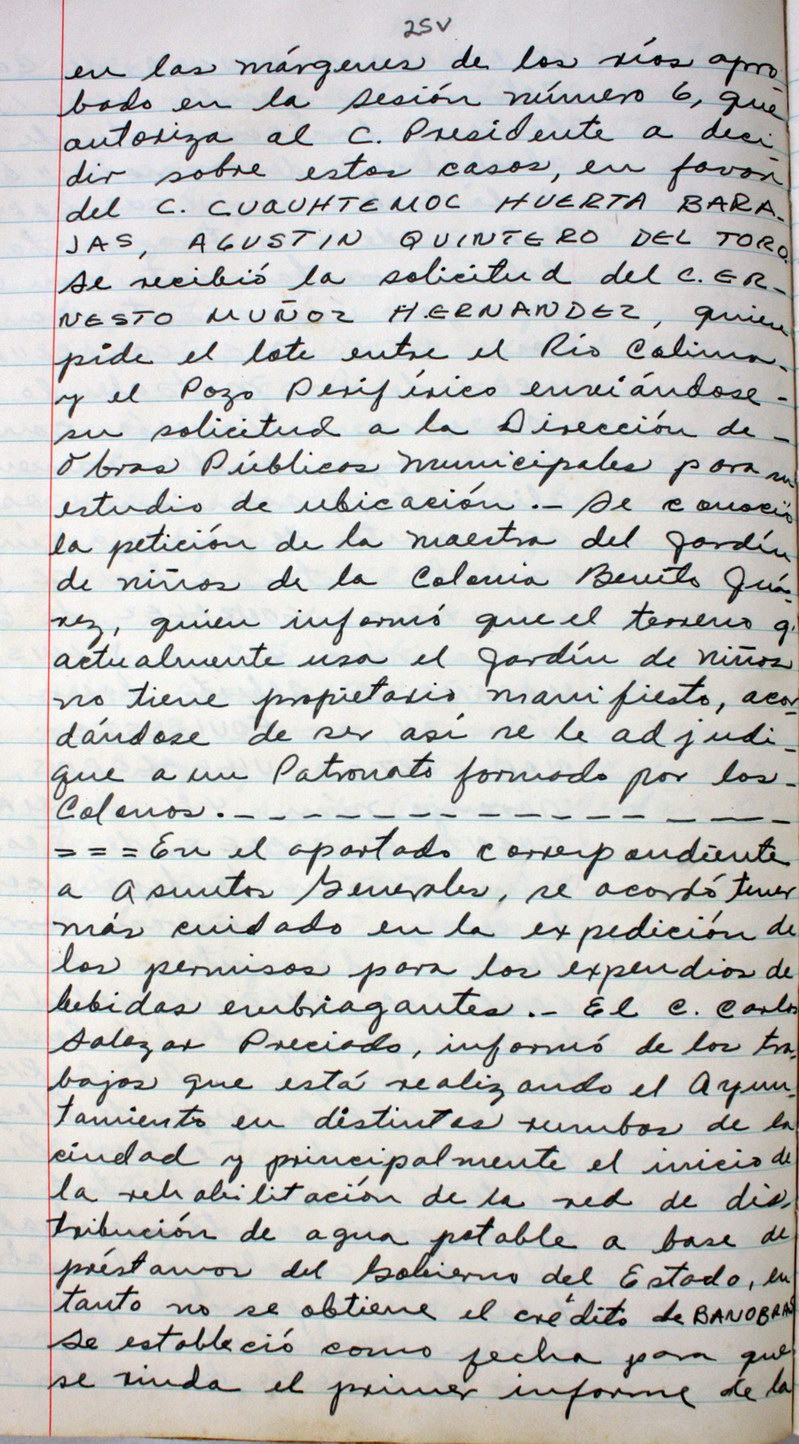 25V
en las márgenes de los ríos apro-
bado en la sesión número 6, que
autoriza al C. Presidente a deci-
dir sobre estos casos, en favor
del C. CUAUHTEMOC HUERTA BARA-
JAS, AGUSTIN QUINTERO DEL TORO.
Se recibió la solicitud del C. ER-
NESTO MUÑOZ HERNANDEZ, quien
pide el lote entre el Río Colima-
y el Pozo Periférico enviándose-
su solicitud a la Dirección de -
Obras Públicas Municipales para su
estudio de ubicación.- Se conoció
la petición de la maestra del Jardín
de niños de la Colonia Benito Juá-
rez, quien informó que el terreno q'
actualmente usa el Jardín de niños
no tiene propietario manifiesto, acor-
dándose de ser así se le adjudi-
que a un Patronato formado por los-
Colonos.- - - - - - - - - - - - - -
= = = En el apartado correspondiente
a Asuntos Generales, se acordó tener
más cuidado en la expedición de
los permisos para los expendios de
bebidas embriagantes.- El C. Carlos
Salazar Preciado, informó de los tra-
bajos que está realizando el Ayun-
tamiento en distintos rumbos de la
ciudad y principalmente el inicio de
la rehabilitación de la red de dis-
tribución de agua potable a base de
préstamos del Gobierno del Estado, en
tanto no se obtiene el crédito de BANOBRAS
Se estableció como fecha para que
se rinda el primer informe de la